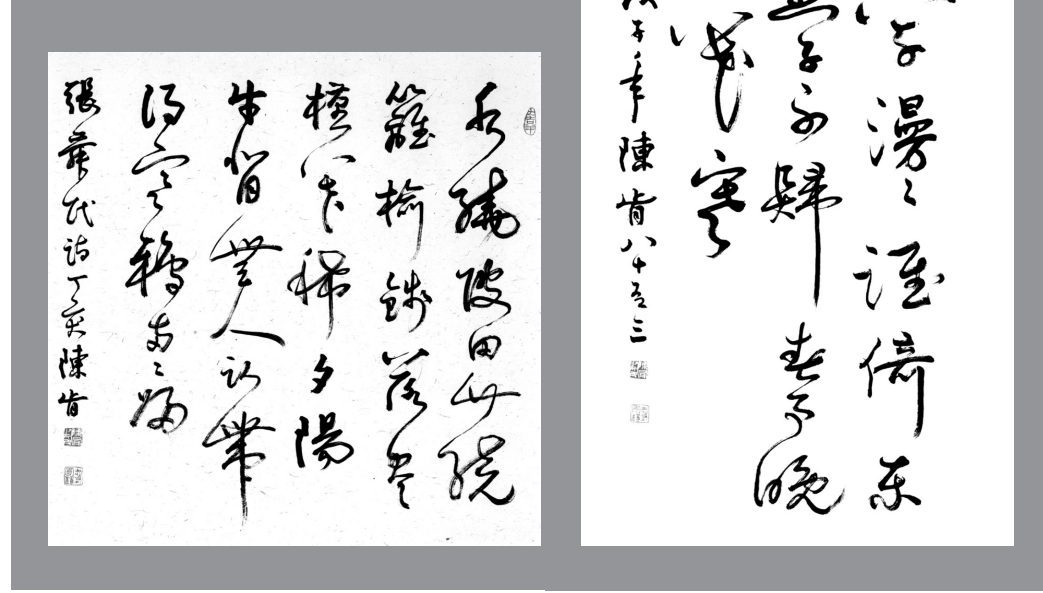 水繞陂田竹繞
籬榆錢落盡
槿花稀夕陽
牛背無人臥帶
得寒鴉兩〻歸
張舜民詩丁亥陳肯
草漫〻誰倚東
子不歸春事晚
花寒
子年陳肯八十有三